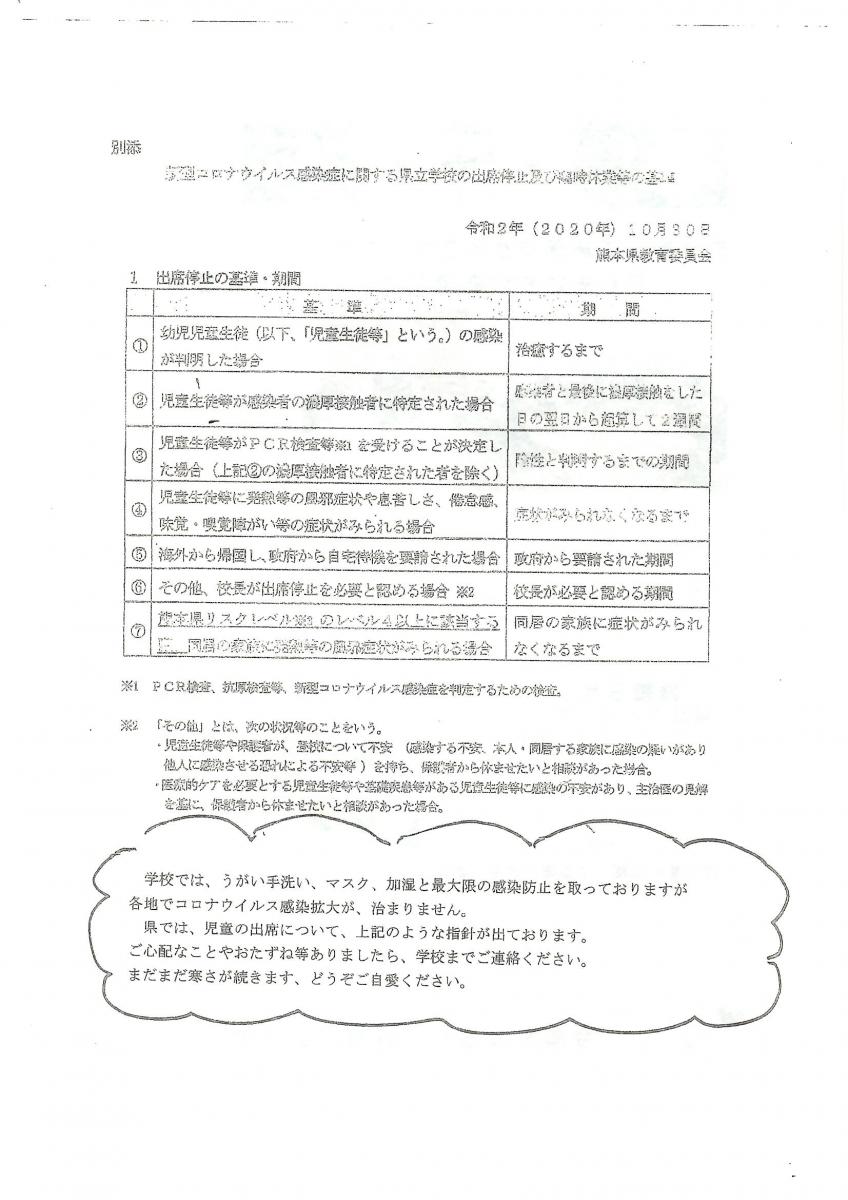 別添
新型コロナウイルス感染症に関する県立学校の出席停止及び臨時休業等の基準
令和2年（2020年）10月30日
熊本県教育委員会
1　出席停止の基準・期間
基　準
期　間
①
幼児児童生徒（以下、「児童生徒等」という。）の感染
が判明した場合
治癒するまで
②
児童生徒等が感染者の濃厚接触者に特定された場合
感染者と最後に濃厚接触をした
日の翌日から起算して2週間
③
児童生徒等がPCR検査等※1 を受けることが決定し
た場合（上記②の濃厚接触者に特定された者を除く）
陰性と判明するまでの期間
④
児童生徒等に発熱等の風邪症状や息苦しさ、倦怠感、
味覚・嗅覚障がい等の症状がみられる場合
症状がみられなくなるまで
⑤
海外から帰国し、政府から自宅待機を要請された場合
政府から要請された期間
⑥
その他、校長が出席停止を必要と認める場合 ※2
校長が必要と認める期間
⑦
熊本県リスクレベル※3 のレベル4以上に該当する
同居の家族に発熱等の風邪症状がみられる場合
同居の家族に症状がみられ
なくなるまで
※1　PCR検査、抗原検査等、新型コロナウイルス感染症を判定するための検査。
※2　「その他」とは、次の状況等のことをいう。
・児童生徒等や保護者が、登校について不安　（感染する不安、本人・同居する家族に感染の疑いがあり
他人に感染させる恐れによる不安等）を持ち、保護者から休ませたいと相談があった場合。
・医療的ケアを必要とする児童生徒等や基礎疾患等がある児童生徒等に感染の不安があり、主治医の見解
を基に、保護者から休ませたいと相談があった場合。
学校では、うがい手洗い、マスク、加湿と最大限の感染防止を取っておりますが
各地でコロナウイルス感染拡大が、治まりません。
県では、児童の出席について、上記のような指針が出ております。
ご心配なことやおたずね等ありましたら、学校までご連絡ください。
まだまだ寒さが続きます、どうぞご自愛ください。